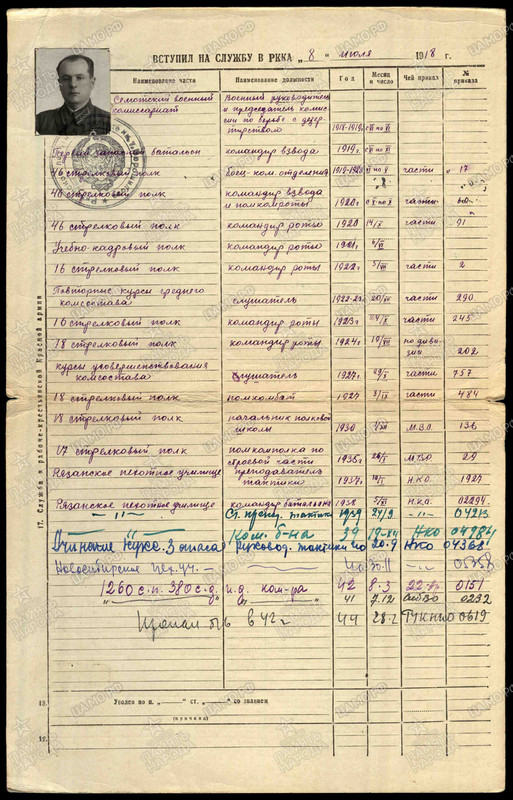 ВСТУПИЛ НА СЛУЖБУ В РККА „ 8 “ июля 1918 г.
Наименование части Наименование должности Год Месяц и число Чей приказ № приказа
военный комиссариат Военный руководитель и председатель комиссии по борьбе с дезертирством 1918-1919г.
Первый запасный батальон командир взвода 1919г.
46 стрелковый полк пом. ком. отделения 1919-1920 части 17
46 стрелковый полк командир взвода и помкомроты 1920г. части
46 стрелковый полк командир роты 1920 14/X части 91
Учебно-кадровый полк командир роты 1921г.
16 стрелковый полк командир роты 1922г. части 2
Повторные курсы среднего комсостава слушатель 1922-23г. части 290
16 стрелковый полк командир роты 1923г. части 245
18 стрелковый полк командир роты 1924г. по дивизии 202
курсы усовершенствования комсостава слушатель 1927г. части 757
18 стрелковый полк помкомбат 1927 части 484
18 стрелковый полк начальник полковой школы 1930 М.В.О. 136
17 стрелковый полк помкомполка по строевой части 1935г. МВО 29
Рязанское пехотное училище преподаватель тактики 1937г. Н.К.О. 1927
Рязанское пехотное училище командир батальона 1938 Н.К.О. 02294
— " — Ст. препод. тактики 1939 27/9 — " — 04213
Ком. б-на 39 НКО 04984
курс. запаса Руковод. тактики 40 20.9 НКО 04368
Новосибирское пех. уч. — 40 30.11 — " — 05358
1260 с.п. 380 с.д. и.д. ком-ра 42 8.3 0151
— " — — " — 41 7.12 СибВО 0232
Пропал б/в в 42 г. 44 28.2 ГУК НКО 0619
17. Служба в рабоче-крестьянской Красной армии
18. Уволен по п. „ “ ст. „ “ со званием
(причина)
19.
ЦАМО.РФ